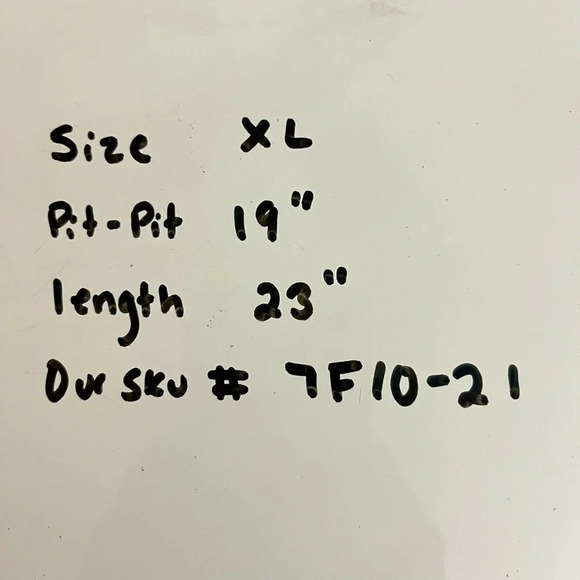 Size XL
Pit-Pit 19"
length 23"
Our SKU # 7F10-21